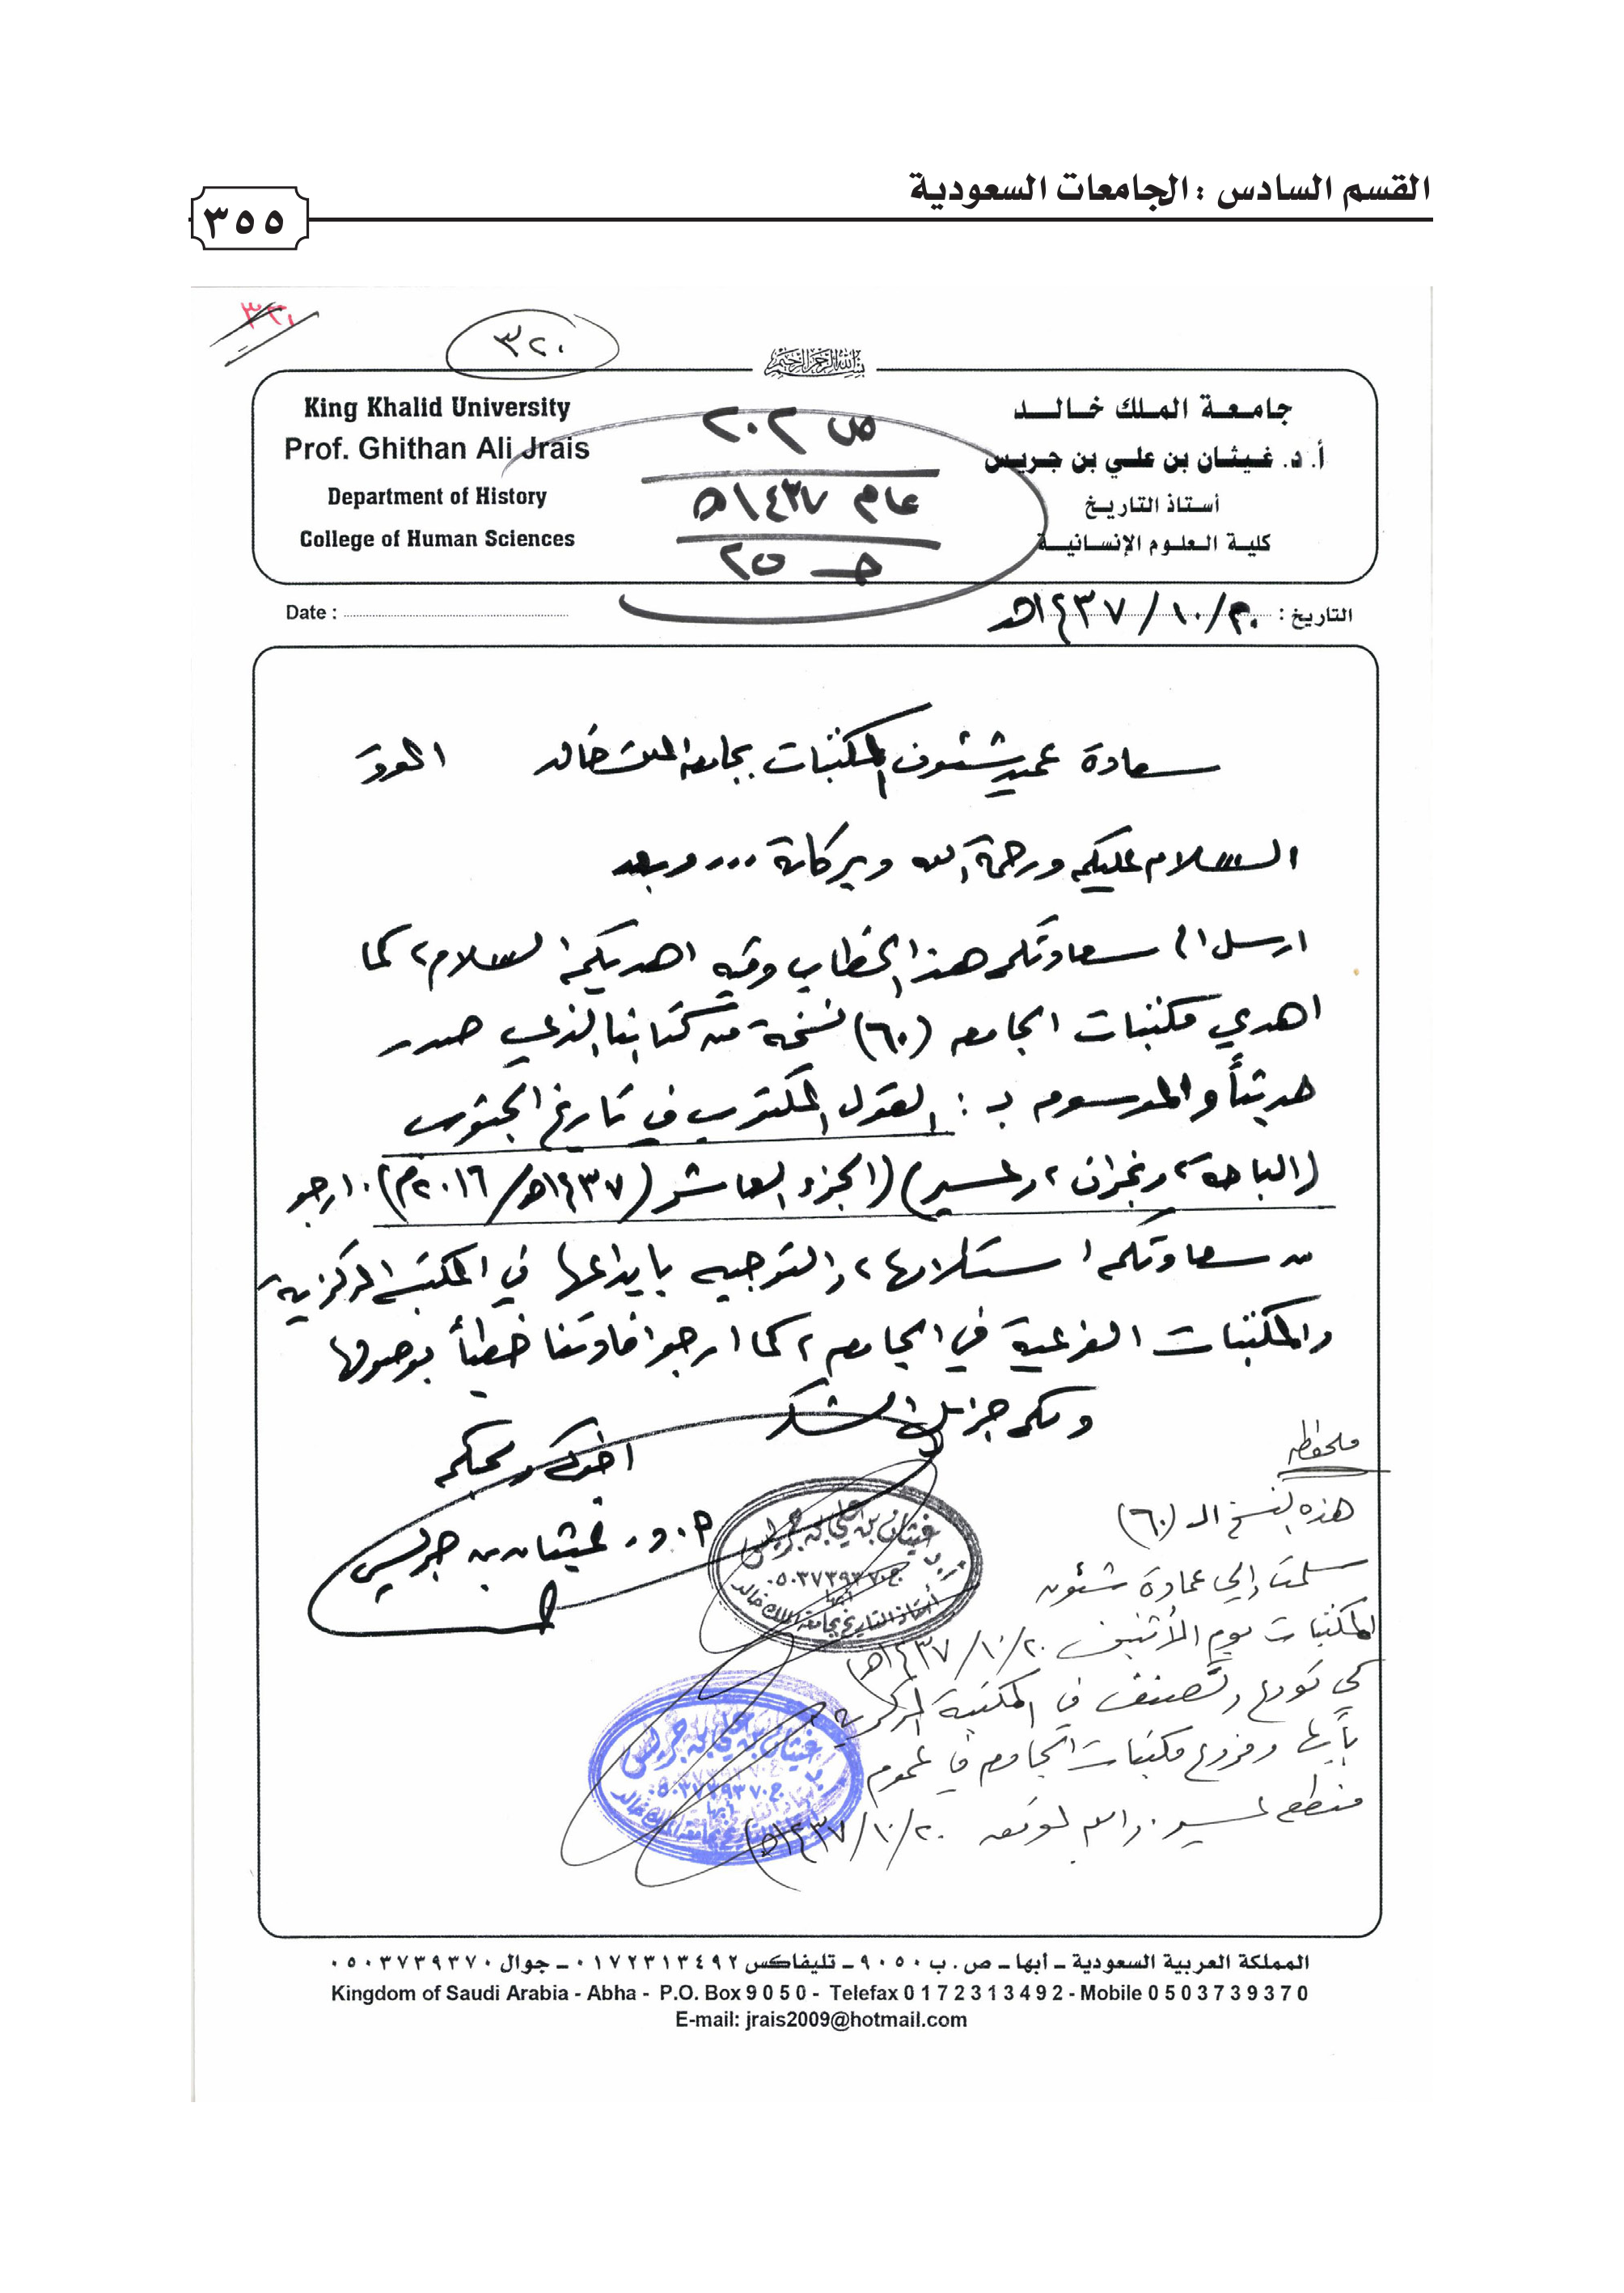 القسم السادس : الجامعات السعودية
٣٥٥
٣٢٠
بسم الله الرحمن الرحيم
جامعة الملك خالد
أ. د. غيثان بن علي بن جريس
أستاذ التاريخ
كلية العلوم الإنسانية
King Khalid University
Prof. Ghithan Ali Jrais
Department of History
College of Human Sciences
ص ٢٠٢
عام ١٤٣٧هـ
حـ ٢٥
التاريخ : ٢٠/١٠/١٤٣٧هـ
Date :
سعادة عميد شئون المكتبات بجامعة الملك خالد الموقر
السلام عليكم ورحمة الله وبركاته ... وبعد
ارسل الى سعادتكم هذا الخطاب وفيه اهديكم السلام، كما
اهدي مكتبات الجامعة (٦٠) نسخة من كتابنا الذي صدر
حديثاً والموسوم بـ : القول المكتوب في تاريخ الجنوب
(الباحة، ونجران، وعسير) (الجزء العاشر) (١٤٣٧هـ/٢٠١٦م). ارجو
من سعادتكم استلامها، والتوجيه بايداعها في المكتبة المركزية
والمكتبات الفرعية في الجامعة، كما ارجو افادتنا خطياً بوصولها
ولكم جزيل الشكر
اخوكم ومحبكم
أ. د. غيثان بن جريس
غيثان بن علي بن جريس
ج ٠٥٠٣٧٣٩٣٧٠
أبها
أستاذ التاريخ بجامعة الملك خالد
ملحوظة
هذه النسخ الـ (٦٠)
سلمت إلى عمادة شئون
المكتبات يوم الأثنين ٢٠/١٠/١٤٣٧هـ
كي تودع وتصنف في المكتبة المركزية
بأبها وفروع مكتبات الجامعة في عموم
منطقة عسير. والله الموفق ٢٠/١٠/١٤٣٧هـ
غيثان بن علي بن جريس
ج ٠٥٠٣٧٣٩٣٧٠
المملكة العربية السعودية ـ أبها ـ ص. ب ٩٠٥٠ ـ تليفاكس ٠١٧٢٣١٣٤٩٢ ـ جوال ٠٥٠٣٧٣٩٣٧٠
Kingdom of Saudi Arabia - Abha - P.O. Box 9 0 5 0 - Telefax 0 1 7 2 3 1 3 4 9 2 - Mobile 0 5 0 3 7 3 9 3 7 0
E-mail: jrais2009@hotmail.com